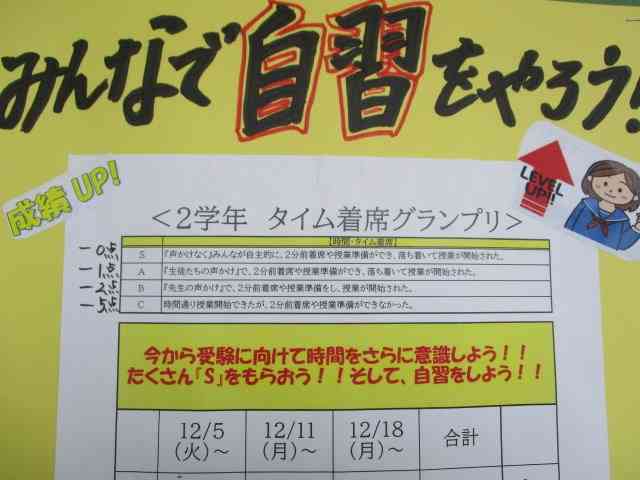 みんなで自習をやろう!
成績UP!
LEVEL UP!!
<2学年 タイム着席グランプリ>
【時間・タイム着席】
-0点 S 『声かけなく』みんなが自主的に、2分前着席や授業準備ができ、落ち着いて授業が開始された。
-1点 A 『生徒たちの声かけ』で、2分前着席や授業準備ができ、落ち着いて授業が開始された。
-2点 B 『先生の声かけ』で、2分前着席や授業準備をし、授業が開始された。
-5点 C 時間通り授業開始できたが、2分前着席や授業準備ができなかった。
今から受験に向けて時間をさらに意識しよう!!
たくさん『S』をもらおう!!そして、自習をしよう!!
12/5 12/11 12/18 合計
(火)~ (月)~ (月)~